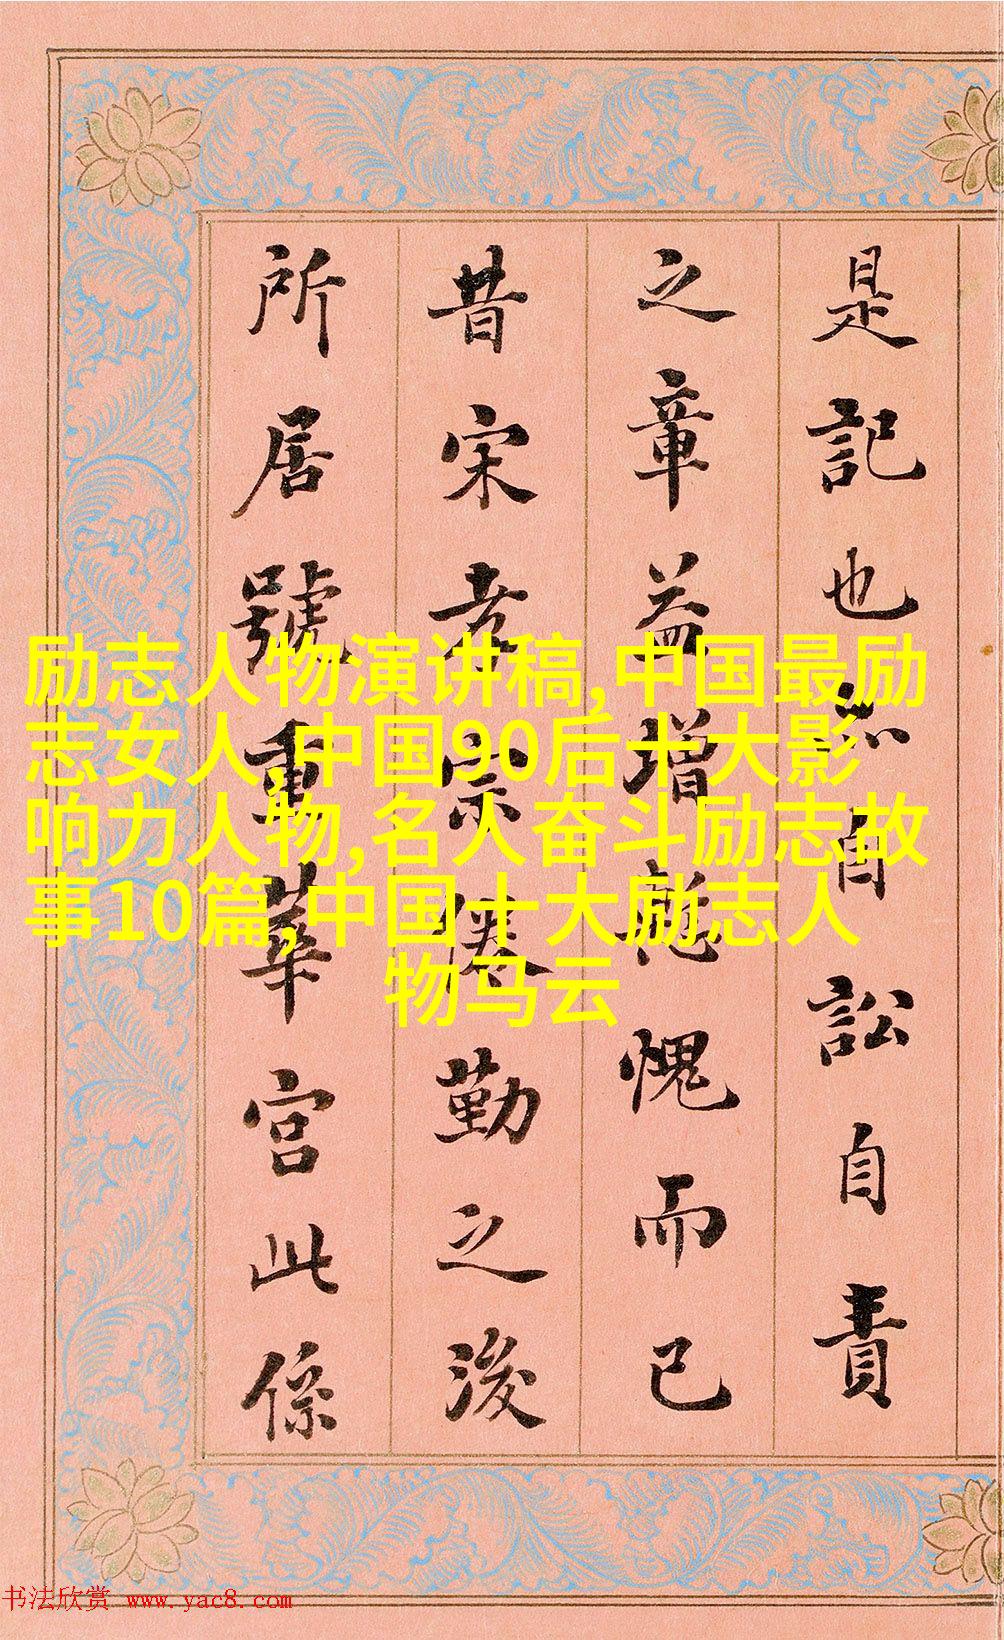 是記也亦自訟自責
之章益增慙愧而已
昔宋孝宗倦勤之後
所居號重華宮此係
励志人物演讲稿,中国最励
志女人,中国90后十大影
响力人物,名人奋斗励志故
事10篇,中国十大励志人
物马云
书法欣赏 www.yac8.com